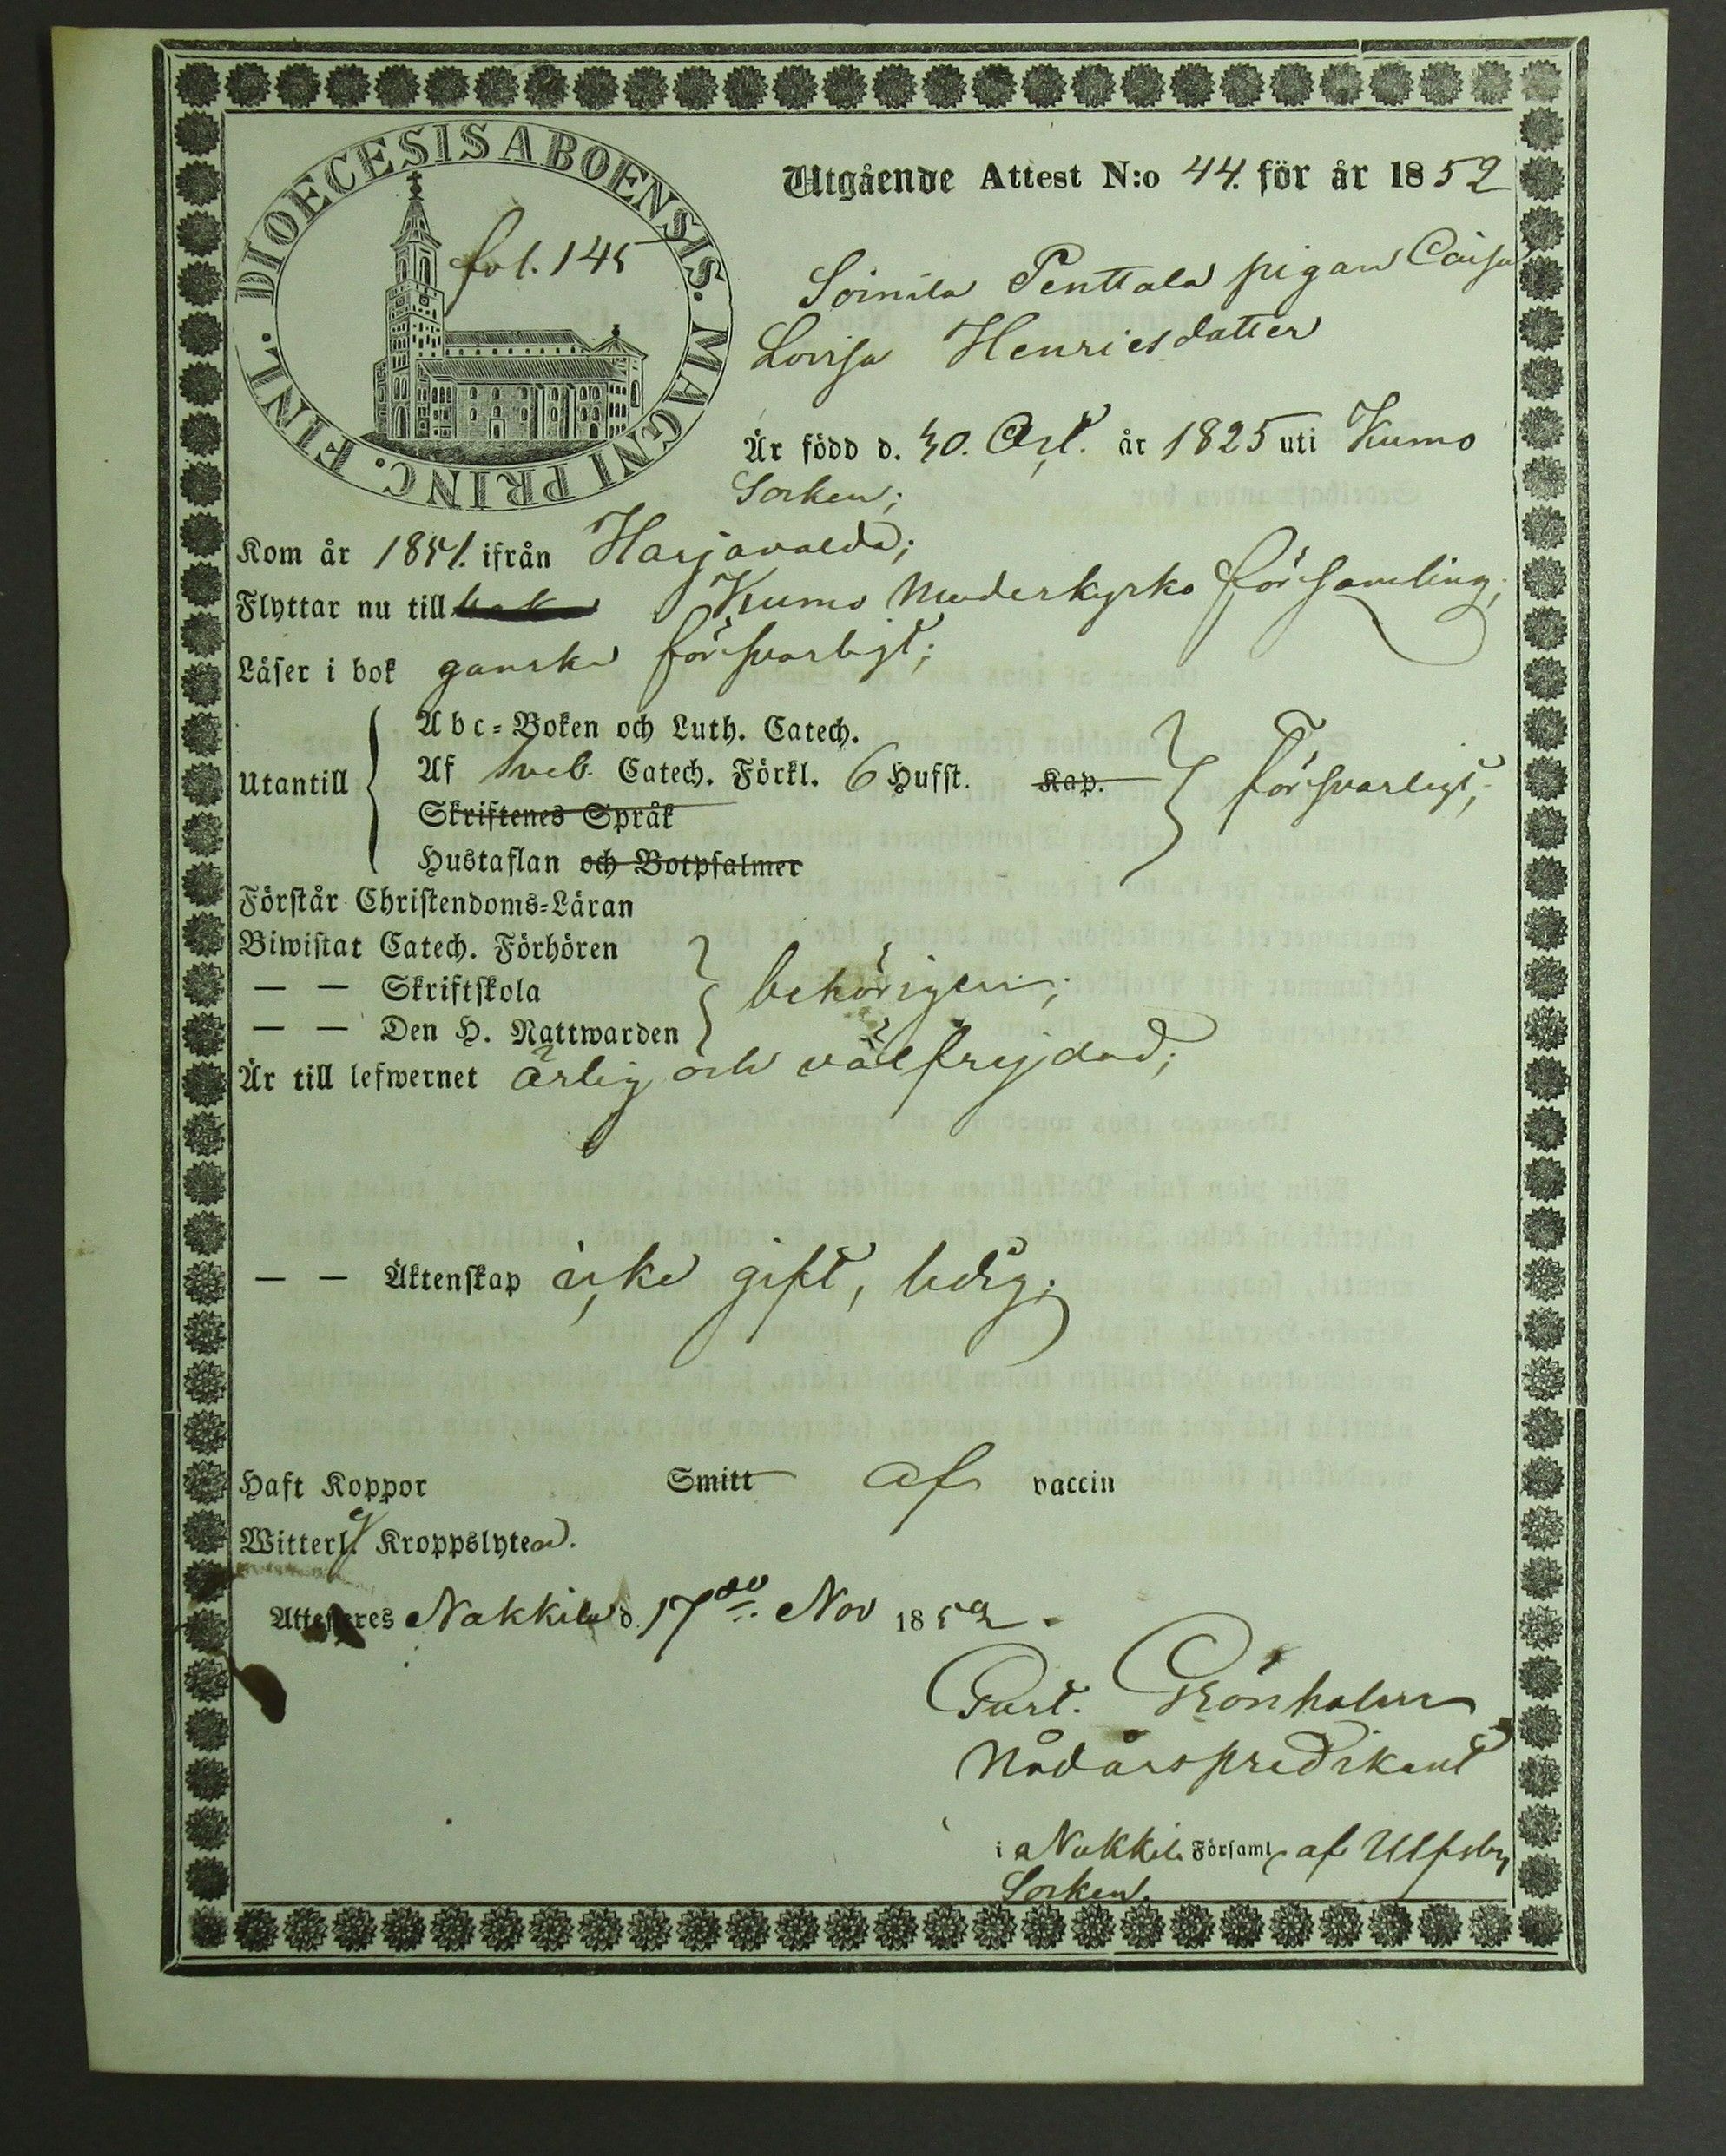 DIOECESIS ABOENSIS. MAGNI PRINC. FINL.
fol. 145
Utgående Attest N:o 44. för år 1852
Soinila Penttala pigan Caisa
Lovisa Henricsdatter
Är född d. 30. Oct. år 1825 uti Kumo
Socken;
Kom år 1851. ifrån Harjavalda;
Flyttar nu till Kumo Moderkyrko församling;
Läser i bok ganska försvarligt;
Utantill
Abc-Boken och Luth. Catech.
Af Sveb. Catech. Förkl. 6 Hufst. Kap.
Skriftenes Språk
Hustaflan och Botpsalmer
försvarligt;
Förstår Christendoms-Läran
Biwistat Catech. Förhören
— — Skriftskola
— — Den H. Nattwarden
behörigen;
Är till lefwernet ärlig och välfrejdad;
— — Äktenskap icke gift, ledig;
Haft Koppor Smitt af vaccin
Witterl. Kroppslyten.
Attesteres Nakkila d. 17de Nov 1852.
Gust. Grönholm
Nådårspredikant
i Nakkila Församl. af Ulfsby
Socken.